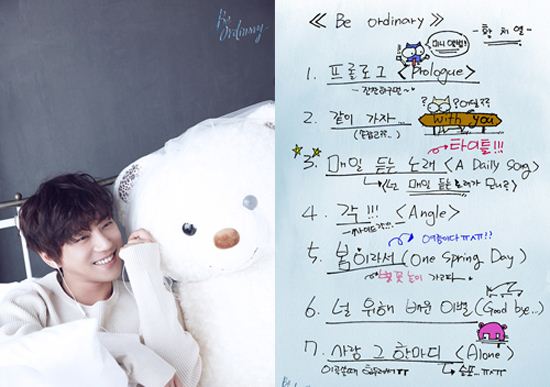 Be
Ordinary
≪ Be ordinary ≫
- 황 치 열 -
미니앨범!
1. 프롤로그 <Prologue>
2. 같이 가자... with you
타이틀!!!
3. 매일 듣는 노래 <A Daily Song>
매일 듣는 노래가
4. 각 !!! <Angle>
5. 봄이라서 (One Spring Day)
여름이다 ㅠㅅㅠ??
벚꽃놀이 가르다~
6. 널 위해 배운 이별 (Good bye..)
7. 사랑 그 한마디 <Alone>
슬포... ㅠㅅㅠ
Be